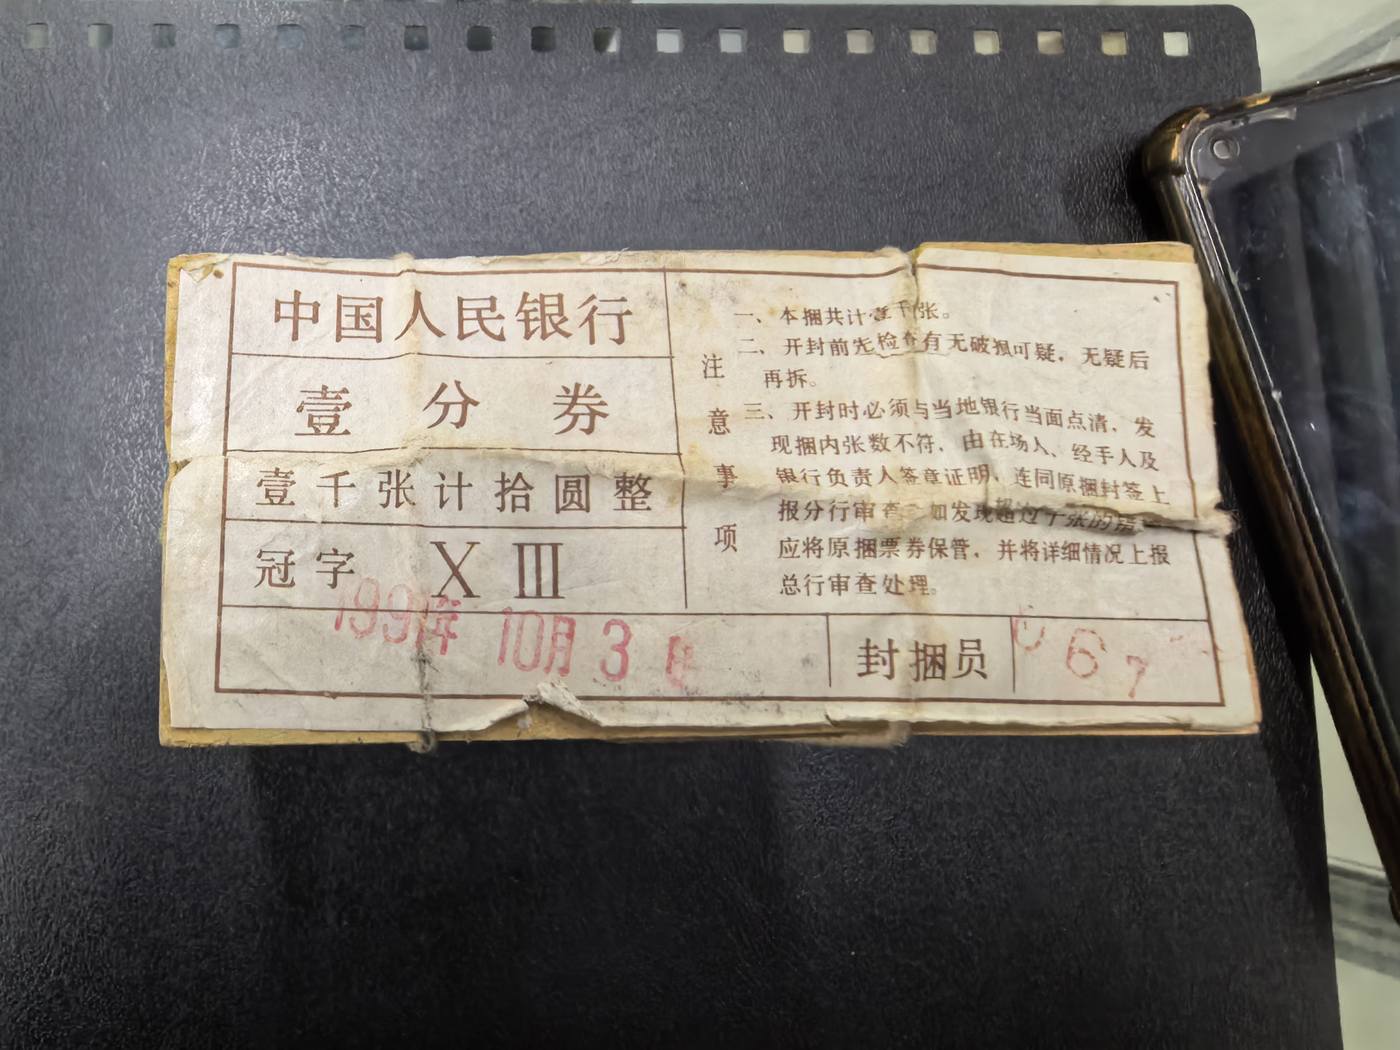 中国人民银行
壹分券
壹千张计拾圆整
冠字 XIII
1991年 10月 3日
注意事项
一、本捆共计壹千张。
二、开封前先检查有无破损可疑，无疑后
再拆。
三、开封时必须与当地银行当面点清，发
现捆内张数不符，由在场人、经手人及
银行负责人签章证明，连同原捆封签上
报分行审查 如发现超过千张的
应将原捆票券保管，并将详细情况上报
总行审查处理。
封捆员
067